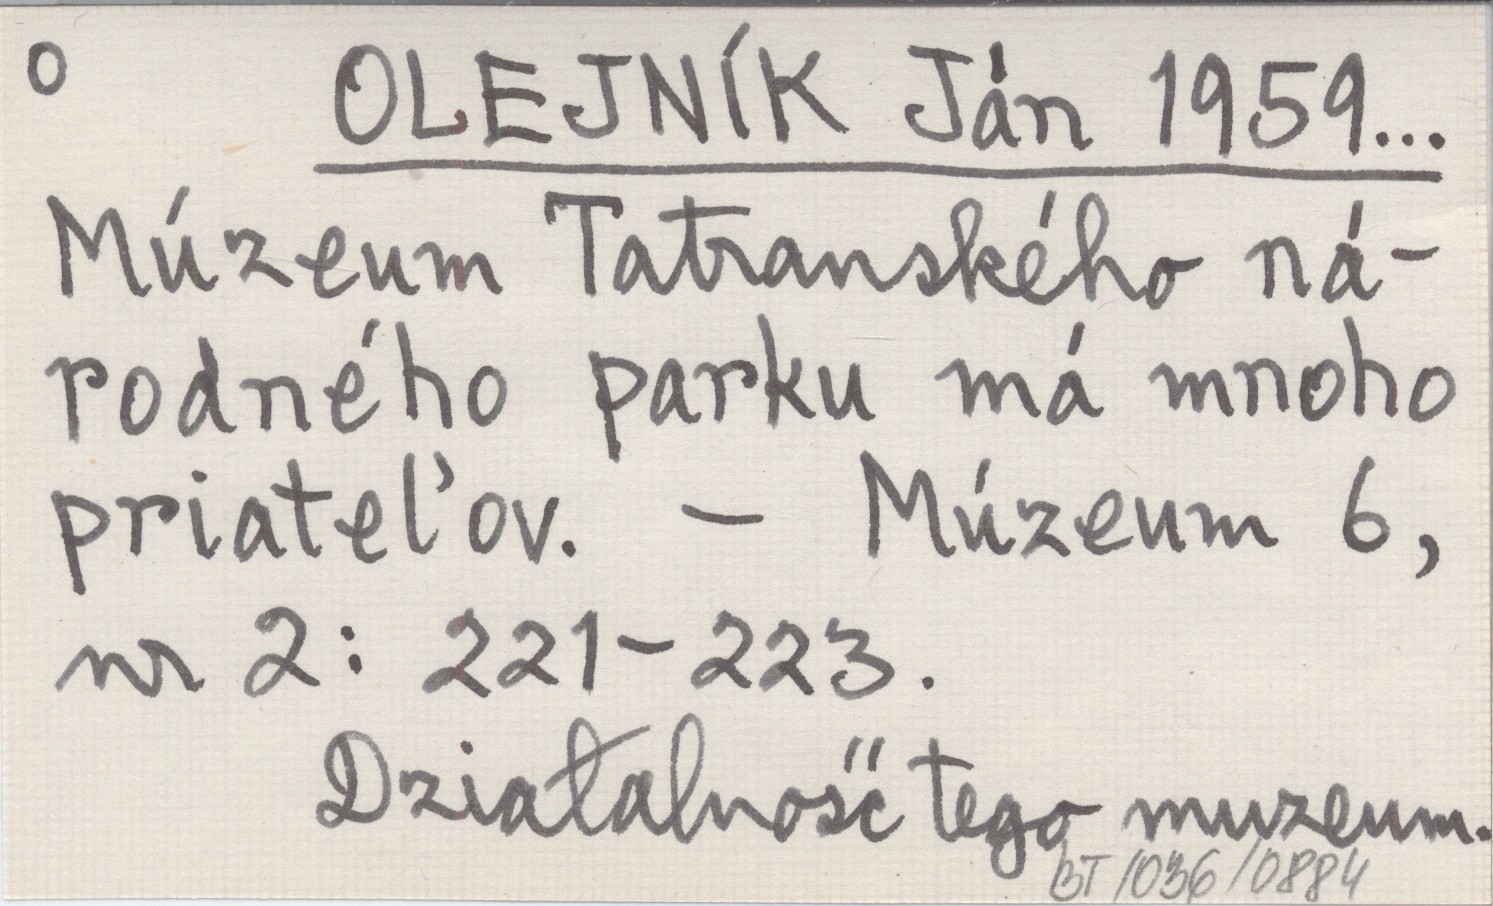 o OLEJNÍK Ján 1959...
Múzeum Tatranského ná-
rodného parku má mnoho
priateľov. – Múzeum 6,
nr 2: 221–223.
Działalność tego muzeum.
BT/036/0884